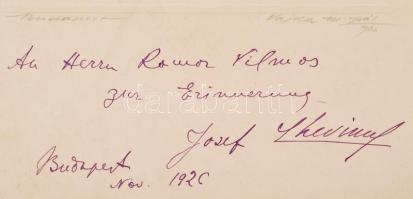 An Herrn Romor Vilmos
zur Erinnerung
Josef Lhevinne
Budapest
Nov. 1926